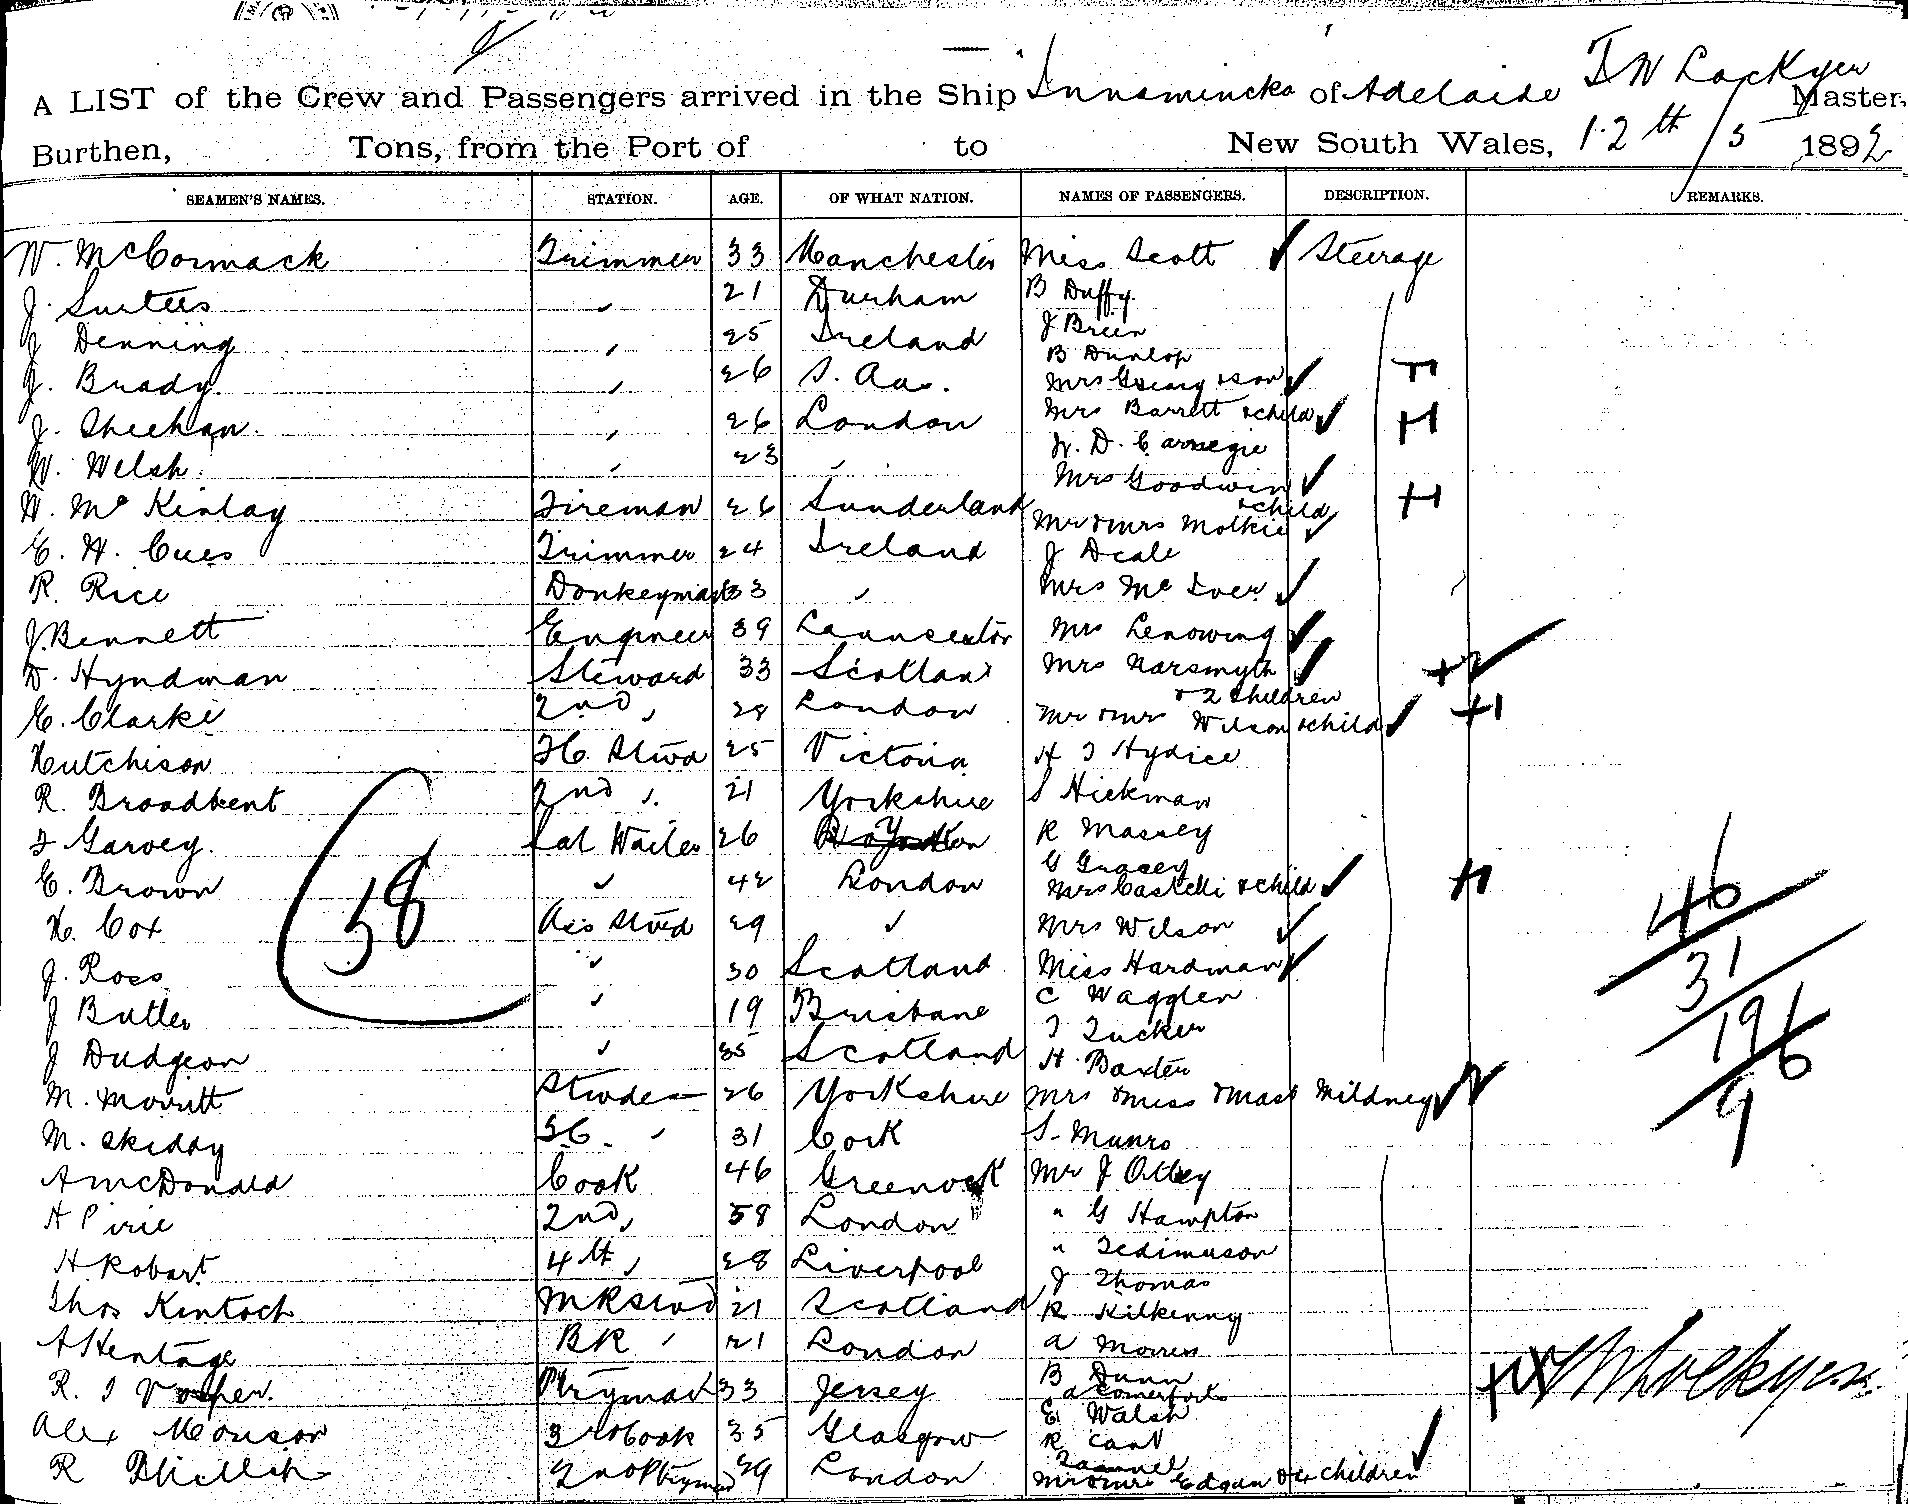 A LIST of the Crew and Passengers arrived in the Ship Innamincka of Adelaide
Master,
Burthen, Tons, from the Port of to New South Wales, 12th/5 1892
SEAMEN'S NAMES. STATION. AGE. OF WHAT NATION. NAMES OF PASSENGERS. DESCRIPTION. REMARKS.
W. McCormack Trimmer 33 Manchester Miss Scott Steerage
J. Surtees 21 Durham B Duffy
J Denning 25 Ireland J Breen
B Dunlop
J. Brady 26 S. Aus. Mrs & son
J. Sheehan 26 London Mrs Barrett & child
W. D. Carnegie
W. Welsh 23 Mrs Goodwin
& child
W. McKinlay Fireman 26 Sunderland Mr & Mrs Molkie
E. H. Cues Trimmer 24 Ireland J Deale
R. Rice Donkeyman 33 Mrs McIver
J. Bennett Engineer 39 Launceston Mrs
D. Hyndman Steward 33 Scotland Mrs Narsmyth
& 2 children
E. Clarke 2nd 28 London Mr & Mrs Wilson & child
Hutchison FC Stwd 25 Victoria
R. Broadbent 2nd 21 Yorkshire S Hickman
F Garvey Sal Waiter 26 R Massey
G Gracey
E. Brown 42 London Mrs Castelli & child
H. Cox Ass Stwd 29 Mrs Wilson
J. Ross 30 Scotland Miss Hardman
J Butler 19 Brisbane C Wagglen
T Tucker
J Dudgeon 35 Scotland H. Baxter
M. Morritt Stwdess 26 Yorkshire Mrs & Miss & Mast Mildney
M. Skiddy SC. 31 Cork S. Munro
A McDonald Cook 46 Greenock Mr J Otley
A Pirie 2nd 58 London " G Hampton
H. Robart 4th 28 Liverpool "
J Thomas
Thos Kintoch MR Stwd 21 Scotland R Kilkenny
A Hentage BR 21 London A Morris
R. J Vosper Ptryman 33 Jersey B Dunn
A Comerford
E Walsh
Alex Monson 3rd Cook 35 Glasgow R Cant
R 2nd Ptryman 29 London Mr & Mrs Edgar & children
58
46
31
196
9